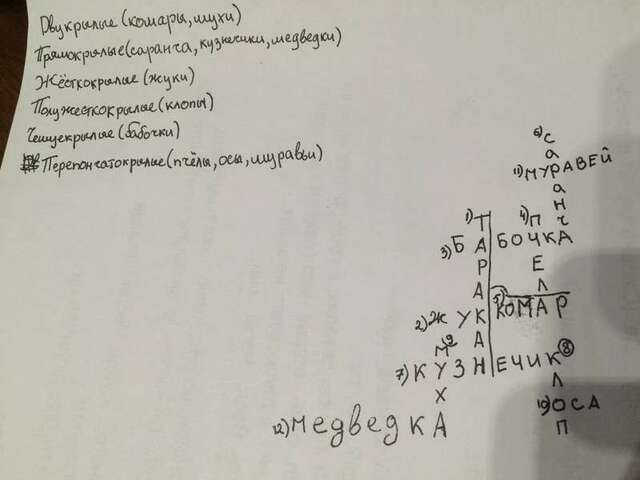 Двукрылые (комары, мухи)
Прямокрылые (саранча, кузнечики, медведки)
Жёсткокрылые (жуки)
Полужесткокрылые (клопы)
Чешуекрылые (бабочки)
Перепончатокрылые (пчёлы, осы, муравьи)
6) С
а
11) МУРАВЕЙ
а
Н
1) Т
4) П ч
3) БАБОЧКА
Р Е
А
2) ЖУК
5) КОМАР
А Л
7) КУЗНЕЧИК 8)
Х Л
12) МЕДВЕДКА
10) ОСА
П